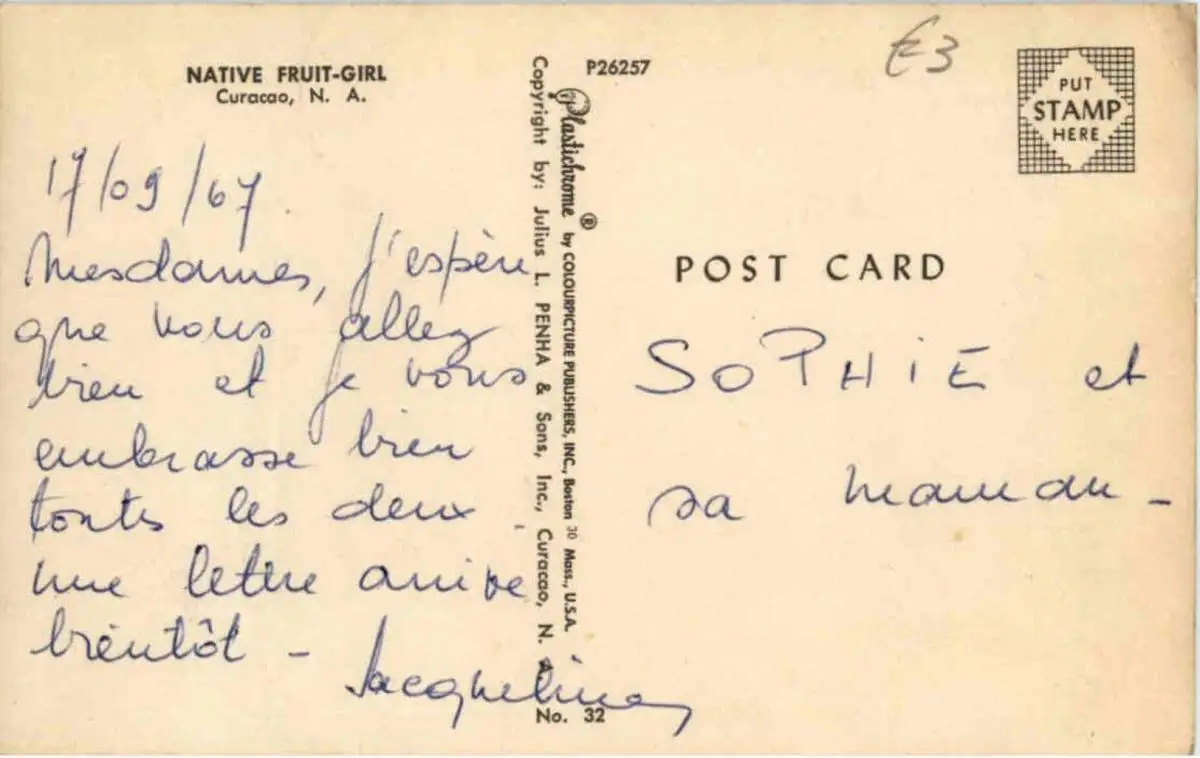 NATIVE FRUIT-GIRL
Curacao, N. A.
17/09/67.
Mesdames, j'espère
que vous allez
bien et je vous
embrasse bien
toutes les deux,
une lettre arrive
bientôt -
Jacqueline
Copyright by: Julius L. PENHA & Sons, Inc., Curacao, N. A.
No. 32
Plastichrome ® by COLOURPICTURE PUBLISHERS, INC., Boston 30 Mass., U.S.A.
P26257
€3
PUT
STAMP
HERE
POST CARD
SOPHIE et
sa maman -